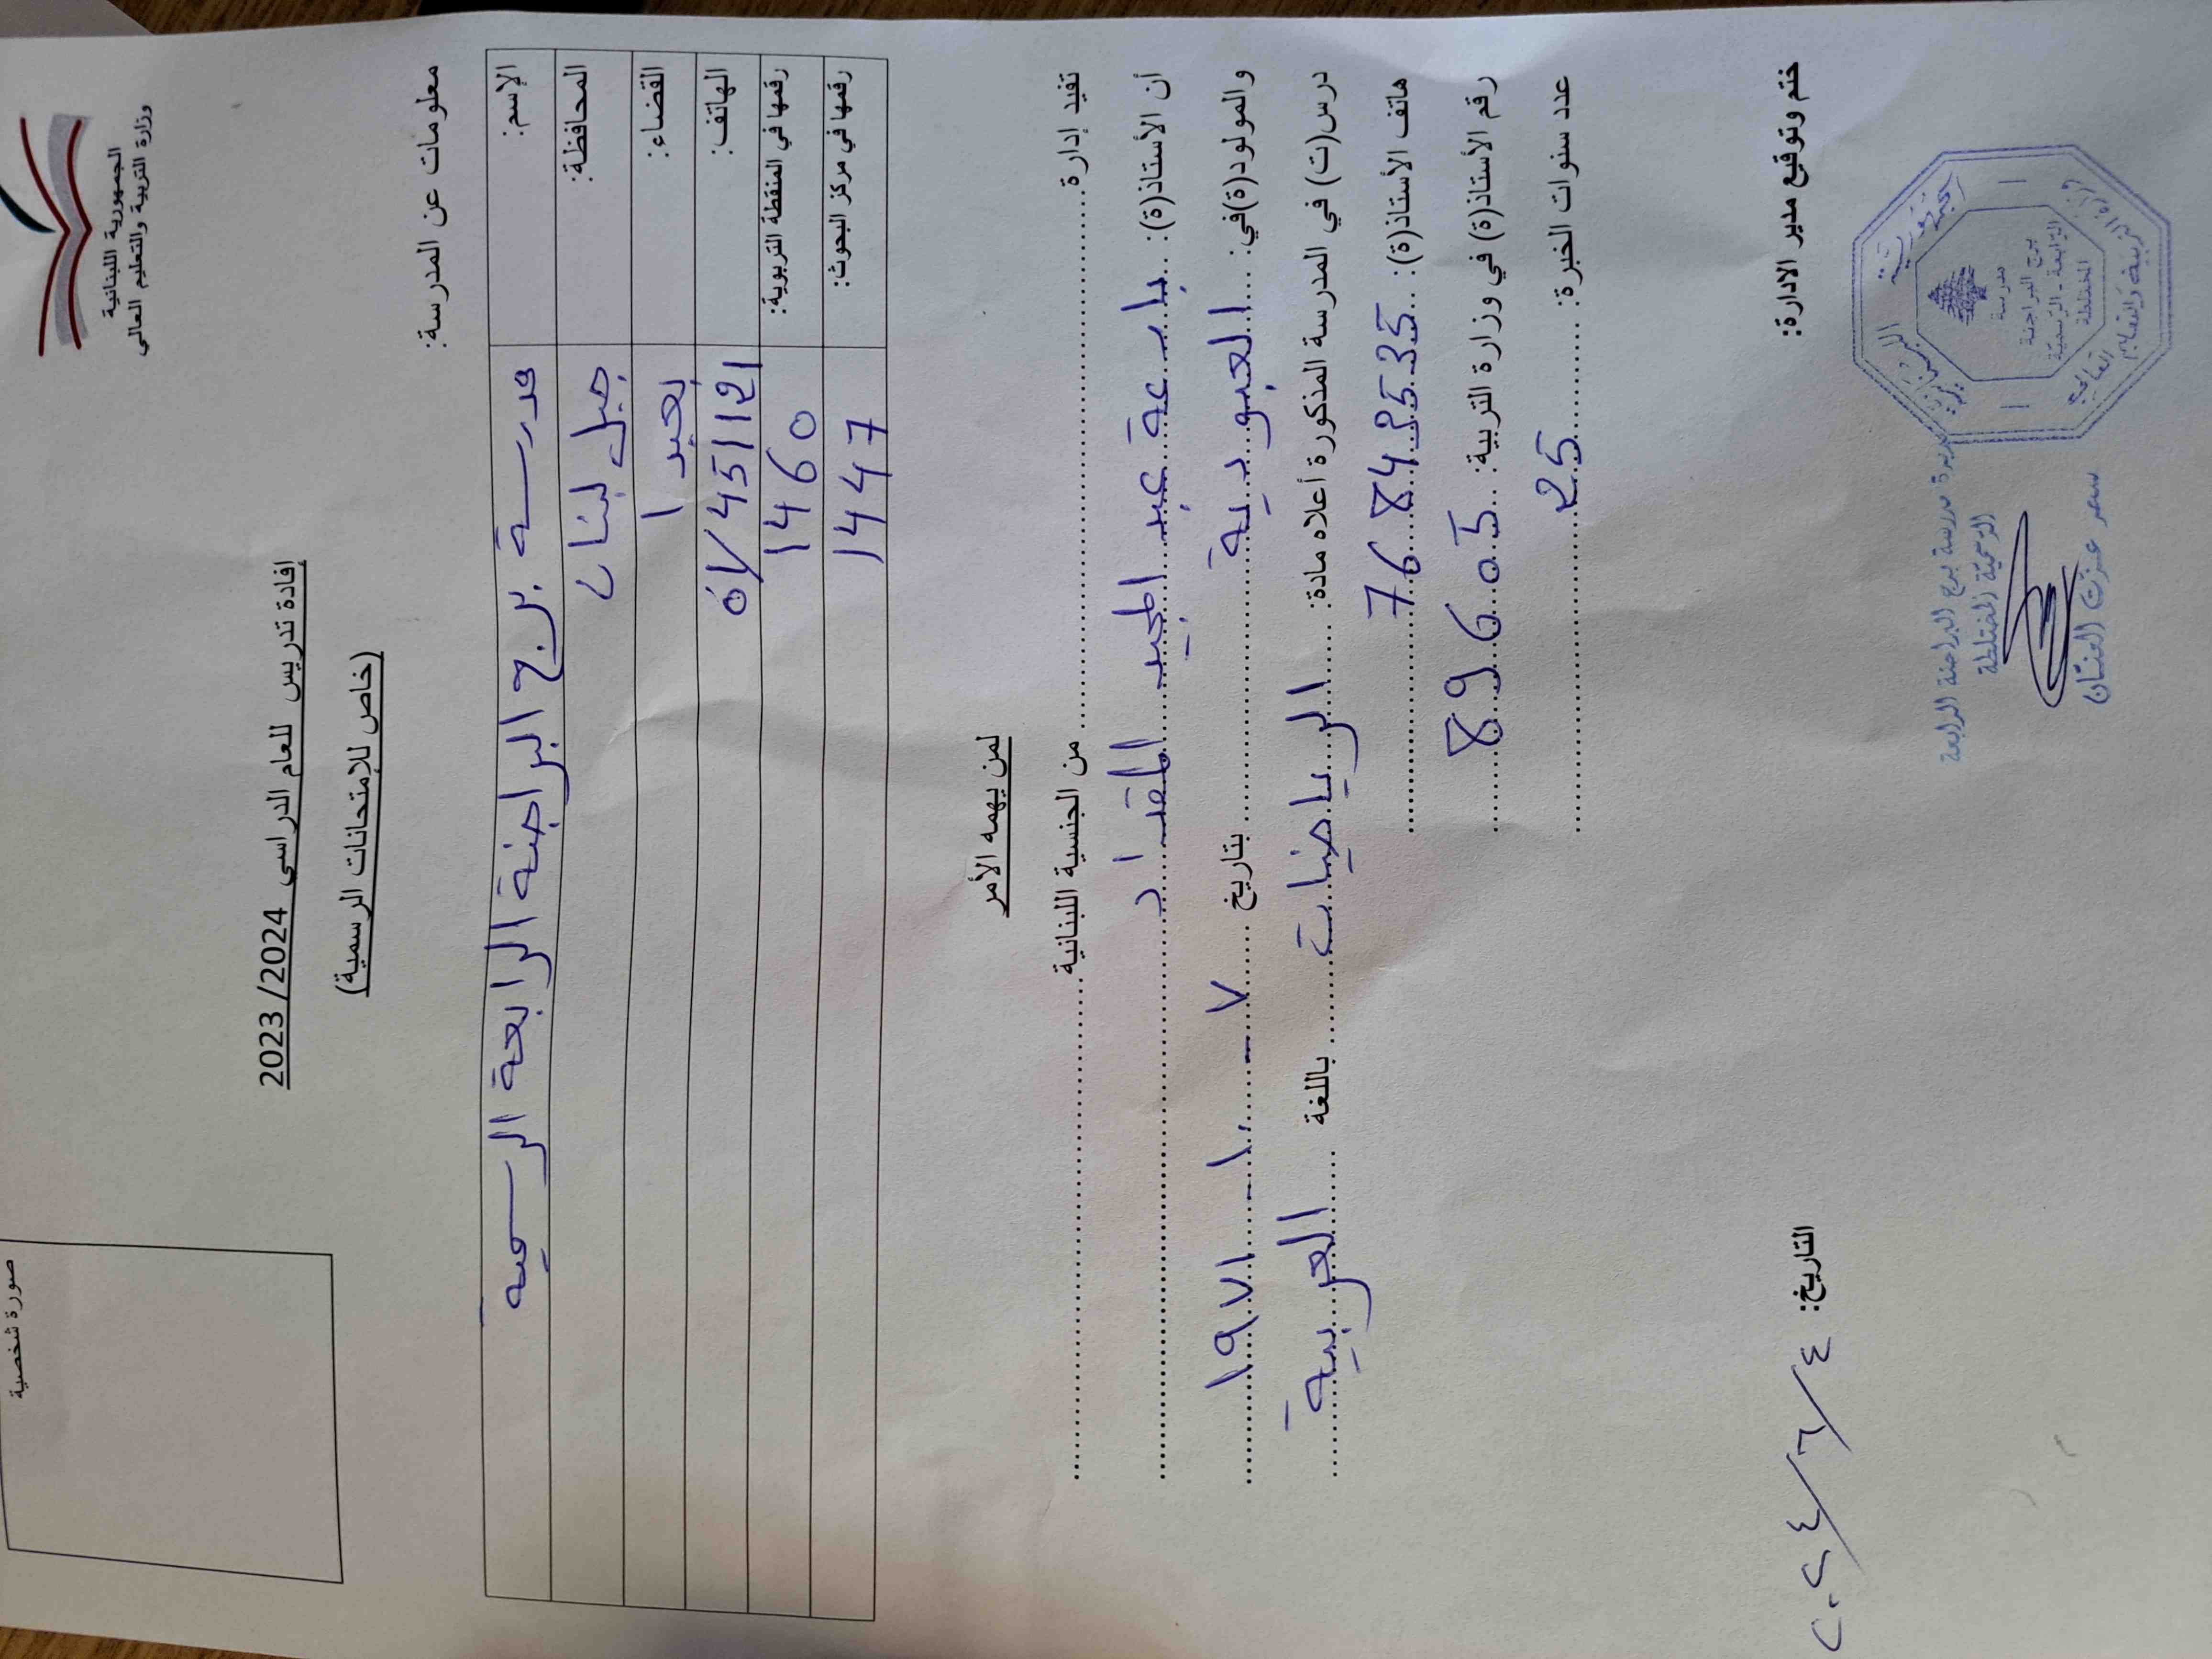 الجمهورية اللبنانية
وزارة التربية والتعليم العالي
صورة شخصية
إفادة تدريس للعام الدراسي 2023/2024
(خاص للإمتحانات الرسمية)
معلومات عن المدرسة:
الإسم: مدرسة برج البراجنة الرابعة الرسمية
المحافظة: جبل لبنان
القضاء: بعبدا
الهاتف: 01/451121
رقمها في المنقطة التربوية: 1460
رقمها في مركز البحوث: 1447
لمن يهمه الأمر
تفيد إدارة ........ من الجنسية اللبنانية ........
أن الأستاذ(ة): بارعة عبد المجيد المقداد
والمولود(ة) في: العبودية بتاريخ ٧ - ١٠ - ١٩٧١
درس(ت) في المدرسة المذكورة أعلاه مادة: الرياضيات باللغة العربية
هاتف الأستاذ(ة): 76842535
رقم الأستاذ(ة) في وزارة التربية: 89605
عدد سنوات الخبرة: 25
ختم وتوقيع مدير الادارة:
التاريخ: ٢٠٢٤/٦/٤
الجمهورية اللبنانية
وزارة التربية والتعليم العالي
مدرسة
برج البراجنة
الرابعة - الرسمية
المختلطة
مديرة مدرسة برج البراجنة الرابعة
الرسمية المختلطة
سمر عزت العنان